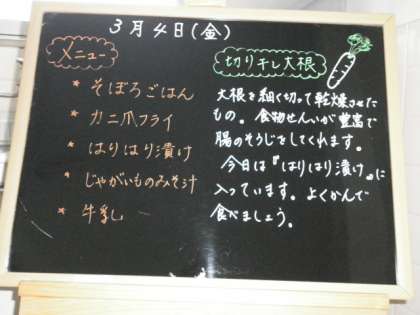 3月4日(金)
メニュー
* そぼろごはん
* カニ爪フライ
* はりはり漬け
* じゃがいものみそ汁
* 牛乳
切り干し大根
大根を細く切って乾燥させた
もの。食物せんいが豊富で
腸のそうじをしてくれます。
今日は『はりはり漬け』に
入っています。よくかんで
食べましょう。